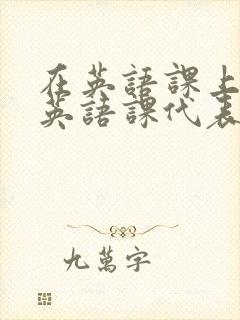 在英語課上
英語課代表
九萬字